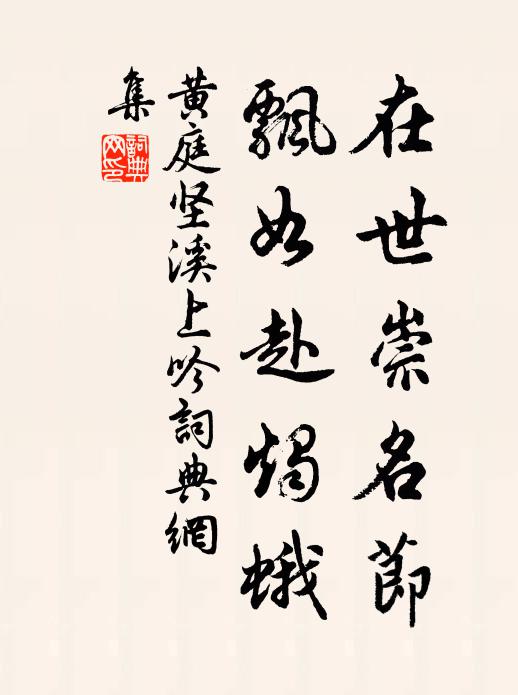 在世崇名節
飄如赴燭蛾
黄庭坚溪上吟詞典網
集
詞典
网印